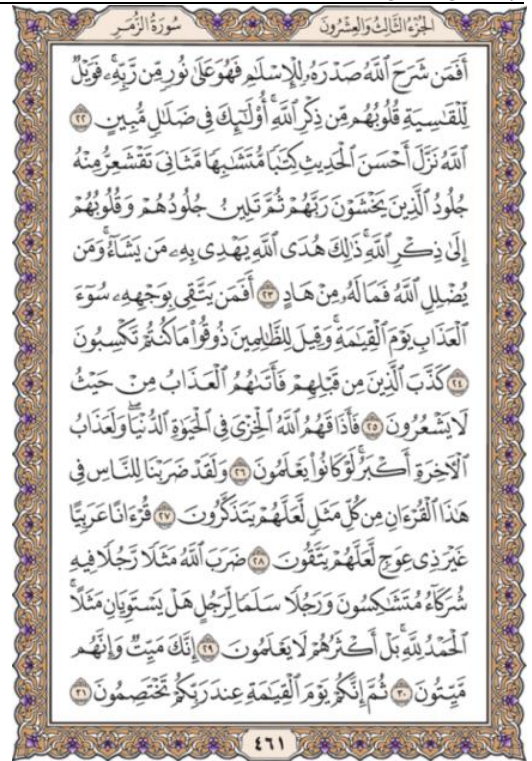 الجُزْءُ الثَّالِثُ وَالعِشْرُونَ سُورَةُ الزُّمَرِ
أَفَمَن شَرَحَ ٱللَّهُ صَدْرَهُۥ لِلْإِسْلَٰمِ فَهُوَ عَلَىٰ نُورٍ مِّن رَّبِّهِۦۚ فَوَيْلٌ
لِّلْقَٰسِيَةِ قُلُوبُهُم مِّن ذِكْرِ ٱللَّهِۚ أُو۟لَٰٓئِكَ فِى ضَلَٰلٍ مُّبِينٍ ٢٢
ٱللَّهُ نَزَّلَ أَحْسَنَ ٱلْحَدِيثِ كِتَٰبًا مُّتَشَٰبِهًا مَّثَانِىَ تَقْشَعِرُّ مِنْهُ
جُلُودُ ٱلَّذِينَ يَخْشَوْنَ رَبَّهُمْ ثُمَّ تَلِينُ جُلُودُهُمْ وَقُلُوبُهُمْ
إِلَىٰ ذِكْرِ ٱللَّهِۚ ذَٰلِكَ هُدَى ٱللَّهِ يَهْدِى بِهِۦ مَن يَشَآءُۚ وَمَن
يُضْلِلِ ٱللَّهُ فَمَا لَهُۥ مِنْ هَادٍ ٢٣ أَفَمَن يَتَّقِى بِوَجْهِهِۦ سُوٓءَ
ٱلْعَذَابِ يَوْمَ ٱلْقِيَٰمَةِۚ وَقِيلَ لِلظَّٰلِمِينَ ذُوقُوا۟ مَا كُنتُمْ تَكْسِبُونَ
٢٤ كَذَّبَ ٱلَّذِينَ مِن قَبْلِهِمْ فَأَتَىٰهُمُ ٱلْعَذَابُ مِنْ حَيْثُ
لَا يَشْعُرُونَ ٢٥ فَأَذَاقَهُمُ ٱللَّهُ ٱلْخِزْىَ فِى ٱلْحَيَوٰةِ ٱلدُّنْيَاۖ وَلَعَذَابُ
ٱلْءَاخِرَةِ أَكْبَرُۚ لَوْ كَانُوا۟ يَعْلَمُونَ ٢٦ وَلَقَدْ ضَرَبْنَا لِلنَّاسِ فِى
هَٰذَا ٱلْقُرْءَانِ مِن كُلِّ مَثَلٍ لَّعَلَّهُمْ يَتَذَكَّرُونَ ٢٧ قُرْءَانًا عَرَبِيًّا
غَيْرَ ذِى عِوَجٍ لَّعَلَّهُمْ يَتَّقُونَ ٢٨ ضَرَبَ ٱللَّهُ مَثَلًا رَّجُلًا فِيهِ
شُرَكَآءُ مُتَشَٰكِسُونَ وَرَجُلًا سَلَمًا لِّرَجُلٍ هَلْ يَسْتَوِيَانِ مَثَلًاۚ
ٱلْحَمْدُ لِلَّهِۚ بَلْ أَكْثَرُهُمْ لَا يَعْلَمُونَ ٢٩ إِنَّكَ مَيِّتٌ وَإِنَّهُم
مَّيِّتُونَ ٣٠ ثُمَّ إِنَّكُمْ يَوْمَ ٱلْقِيَٰمَةِ عِندَ رَبِّكُمْ تَخْتَصِمُونَ ٣١
٤٦١